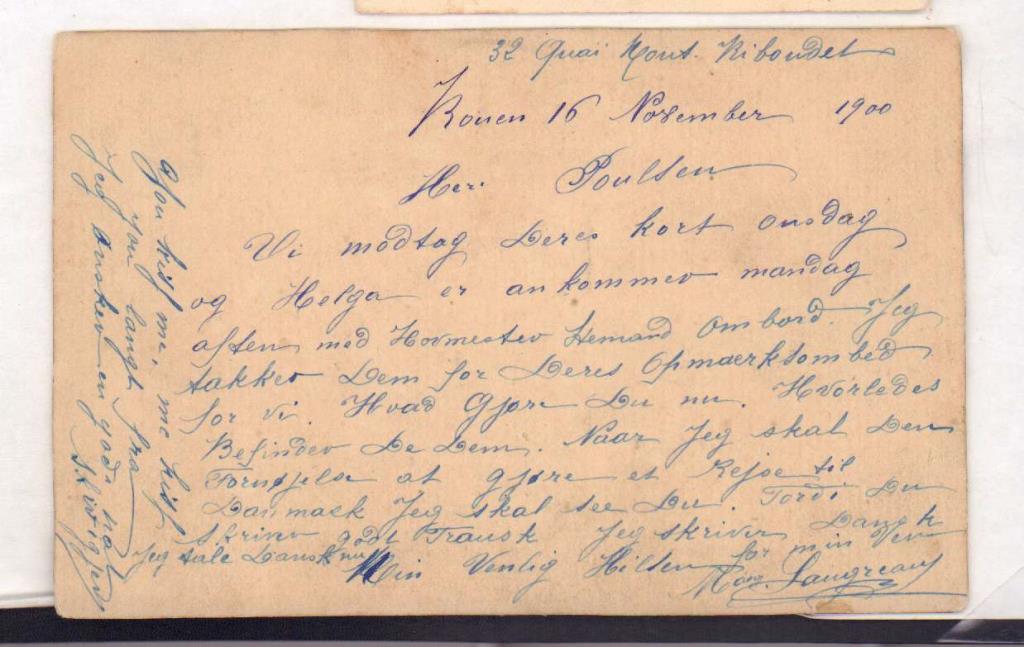 32 Quai Mont. Riboudet
Rouen 16 November 1900
Herr Poulsen
Vi modtag Deres kort onsdag
og Helga er ankommer mandag
aften med Hovmester Hemand ombord. Jeg
takker Dem for Deres Opmaerksomhed
for vi. Hvad Gjøre Du nu. Hvorledes
Befinder De Dem. Naar Jeg skal Den
Fornøjelse at gjøre et Rejse til
Danmark Jeg skal see Du. Fordi Du
skriver godt Fransk Jeg skriver Dansk
Jeg tale Dansk nu for min Ven
Min Venlig Hilsen
Langreau
You kiss me, me kiss
you langt fra
Jeg ønsker en god nat